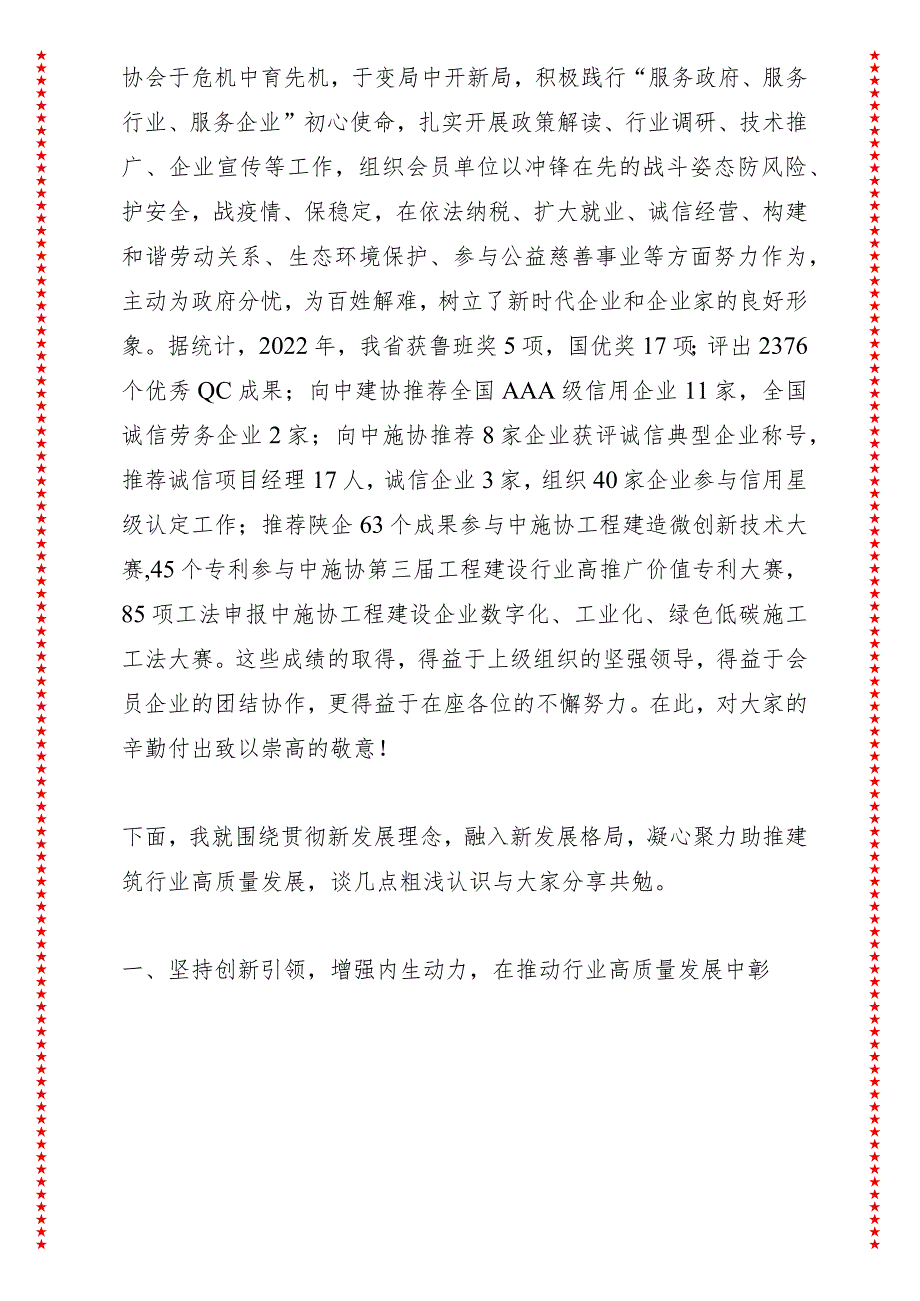 协会于危机中育先机，于变局中开新局，积极践行“服务政府、服务
行业、服务企业”初心使命，扎实开展政策解读、行业调研、技术推
广、企业宣传等工作，组织会员单位以冲锋在先的战斗姿态防风险、
护安全，战疫情、保稳定，在依法纳税、扩大就业、诚信经营、构建
和谐劳动关系、生态环境保护、参与公益慈善事业等方面努力作为，
主动为政府分忧，为百姓解难，树立了新时代企业和企业家的良好形
象。据统计，2022 年，我省获鲁班奖 5 项，国优奖 17 项；评出 2376
个优秀 QC 成果；向中建协推荐全国 AAA 级信用企业 11 家，全国
诚信劳务企业 2 家；向中施协推荐 8 家企业获评诚信典型企业称号，
推荐诚信项目经理 17 人，诚信企业 3 家，组织 40 家企业参与信用星
级认定工作；推荐陕企 63 个成果参与中施协工程建造微创新技术大
赛,45 个专利参与中施协第三届工程建设行业高推广价值专利大赛，
85 项工法申报中施协工程建设企业数字化、工业化、绿色低碳施工
工法大赛。这些成绩的取得，得益于上级组织的坚强领导，得益于会
员企业的团结协作，更得益于在座各位的不懈努力。在此，对大家的
辛勤付出致以崇高的敬意！
下面，我就围绕贯彻新发展理念，融入新发展格局，凝心聚力助推建
筑行业高质量发展，谈几点粗浅认识与大家分享共勉。
一、坚持创新引领，增强内生动力，在推动行业高质量发展中彰